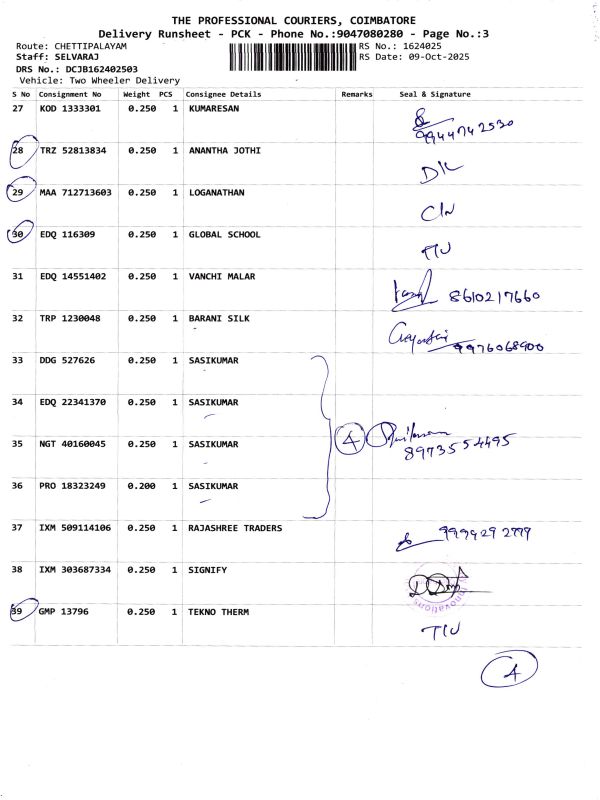 THE PROFESSIONAL COURIERS, COIMBATORE
Delivery Runsheet - PCK - Phone No.:9047080280 - Page No.:3
Route: CHETTIPALAYAM RS No.: 1624025
Staff: SELVARAJ RS Date: 09-Oct-2025
DRS No.: DCJB162402503
Vehicle: Two Wheeler Delivery
S No Consignment No Weight PCS Consignee Details Remarks Seal & Signature
27 KOD 1333301 0.250 1 KUMARESAN
9944742530
28 TRZ 52813834 0.250 1 ANANTHA JOTHI
D/L
29 MAA 712713603 0.250 1 LOGANATHAN
C/N
30 EDQ 116309 0.250 1 GLOBAL SCHOOL
T/U
31 EDQ 14551402 0.250 1 VANCHI MALAR
8610217660
32 TRP 1230048 0.250 1 BARANI SILK
9976068900
33 DDG 527626 0.250 1 SASIKUMAR
34 EDQ 22341370 0.250 1 SASIKUMAR
35 NGT 40160045 0.250 1 SASIKUMAR
4
8973554495
36 PRO 18323249 0.200 1 SASIKUMAR
37 IXM 509114106 0.250 1 RAJASHREE TRADERS
9994292799
38 IXM 303687334 0.250 1 SIGNIFY
39 GMP 13796 0.250 1 TEKNO THERM
T/U
4